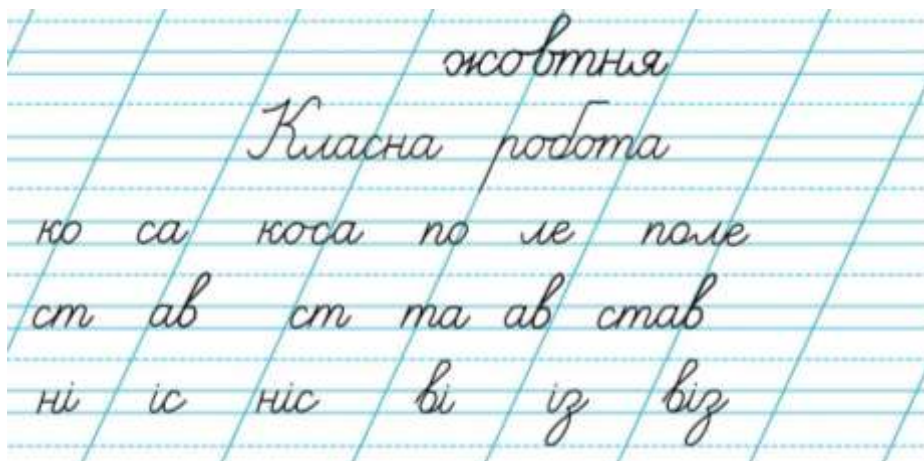 жовтня
Класна робота
ко са коса по ле поле
ст ав ст та ав став
ні іс ніс ві із віз